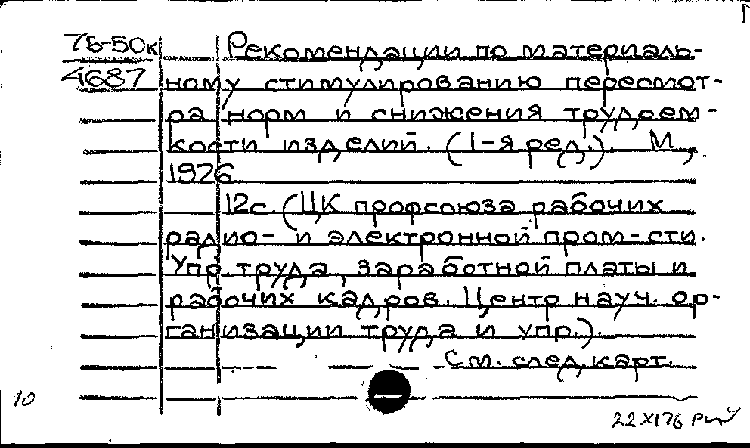 76-50к
4687
Рекомендации по материаль-
ному стимулированию пересмот-
ра норм и снижения трудоем-
кости изделий. (1-я ред.). М,
1976
12с. (ЦК профсоюза рабочих
радио- и электронной пром-сти.
Упр. труда, заработной платы и
рабочих кадров. Центр науч. ор-
ганизации труда и упр.).
См. след. карт.
10
22 XI 76